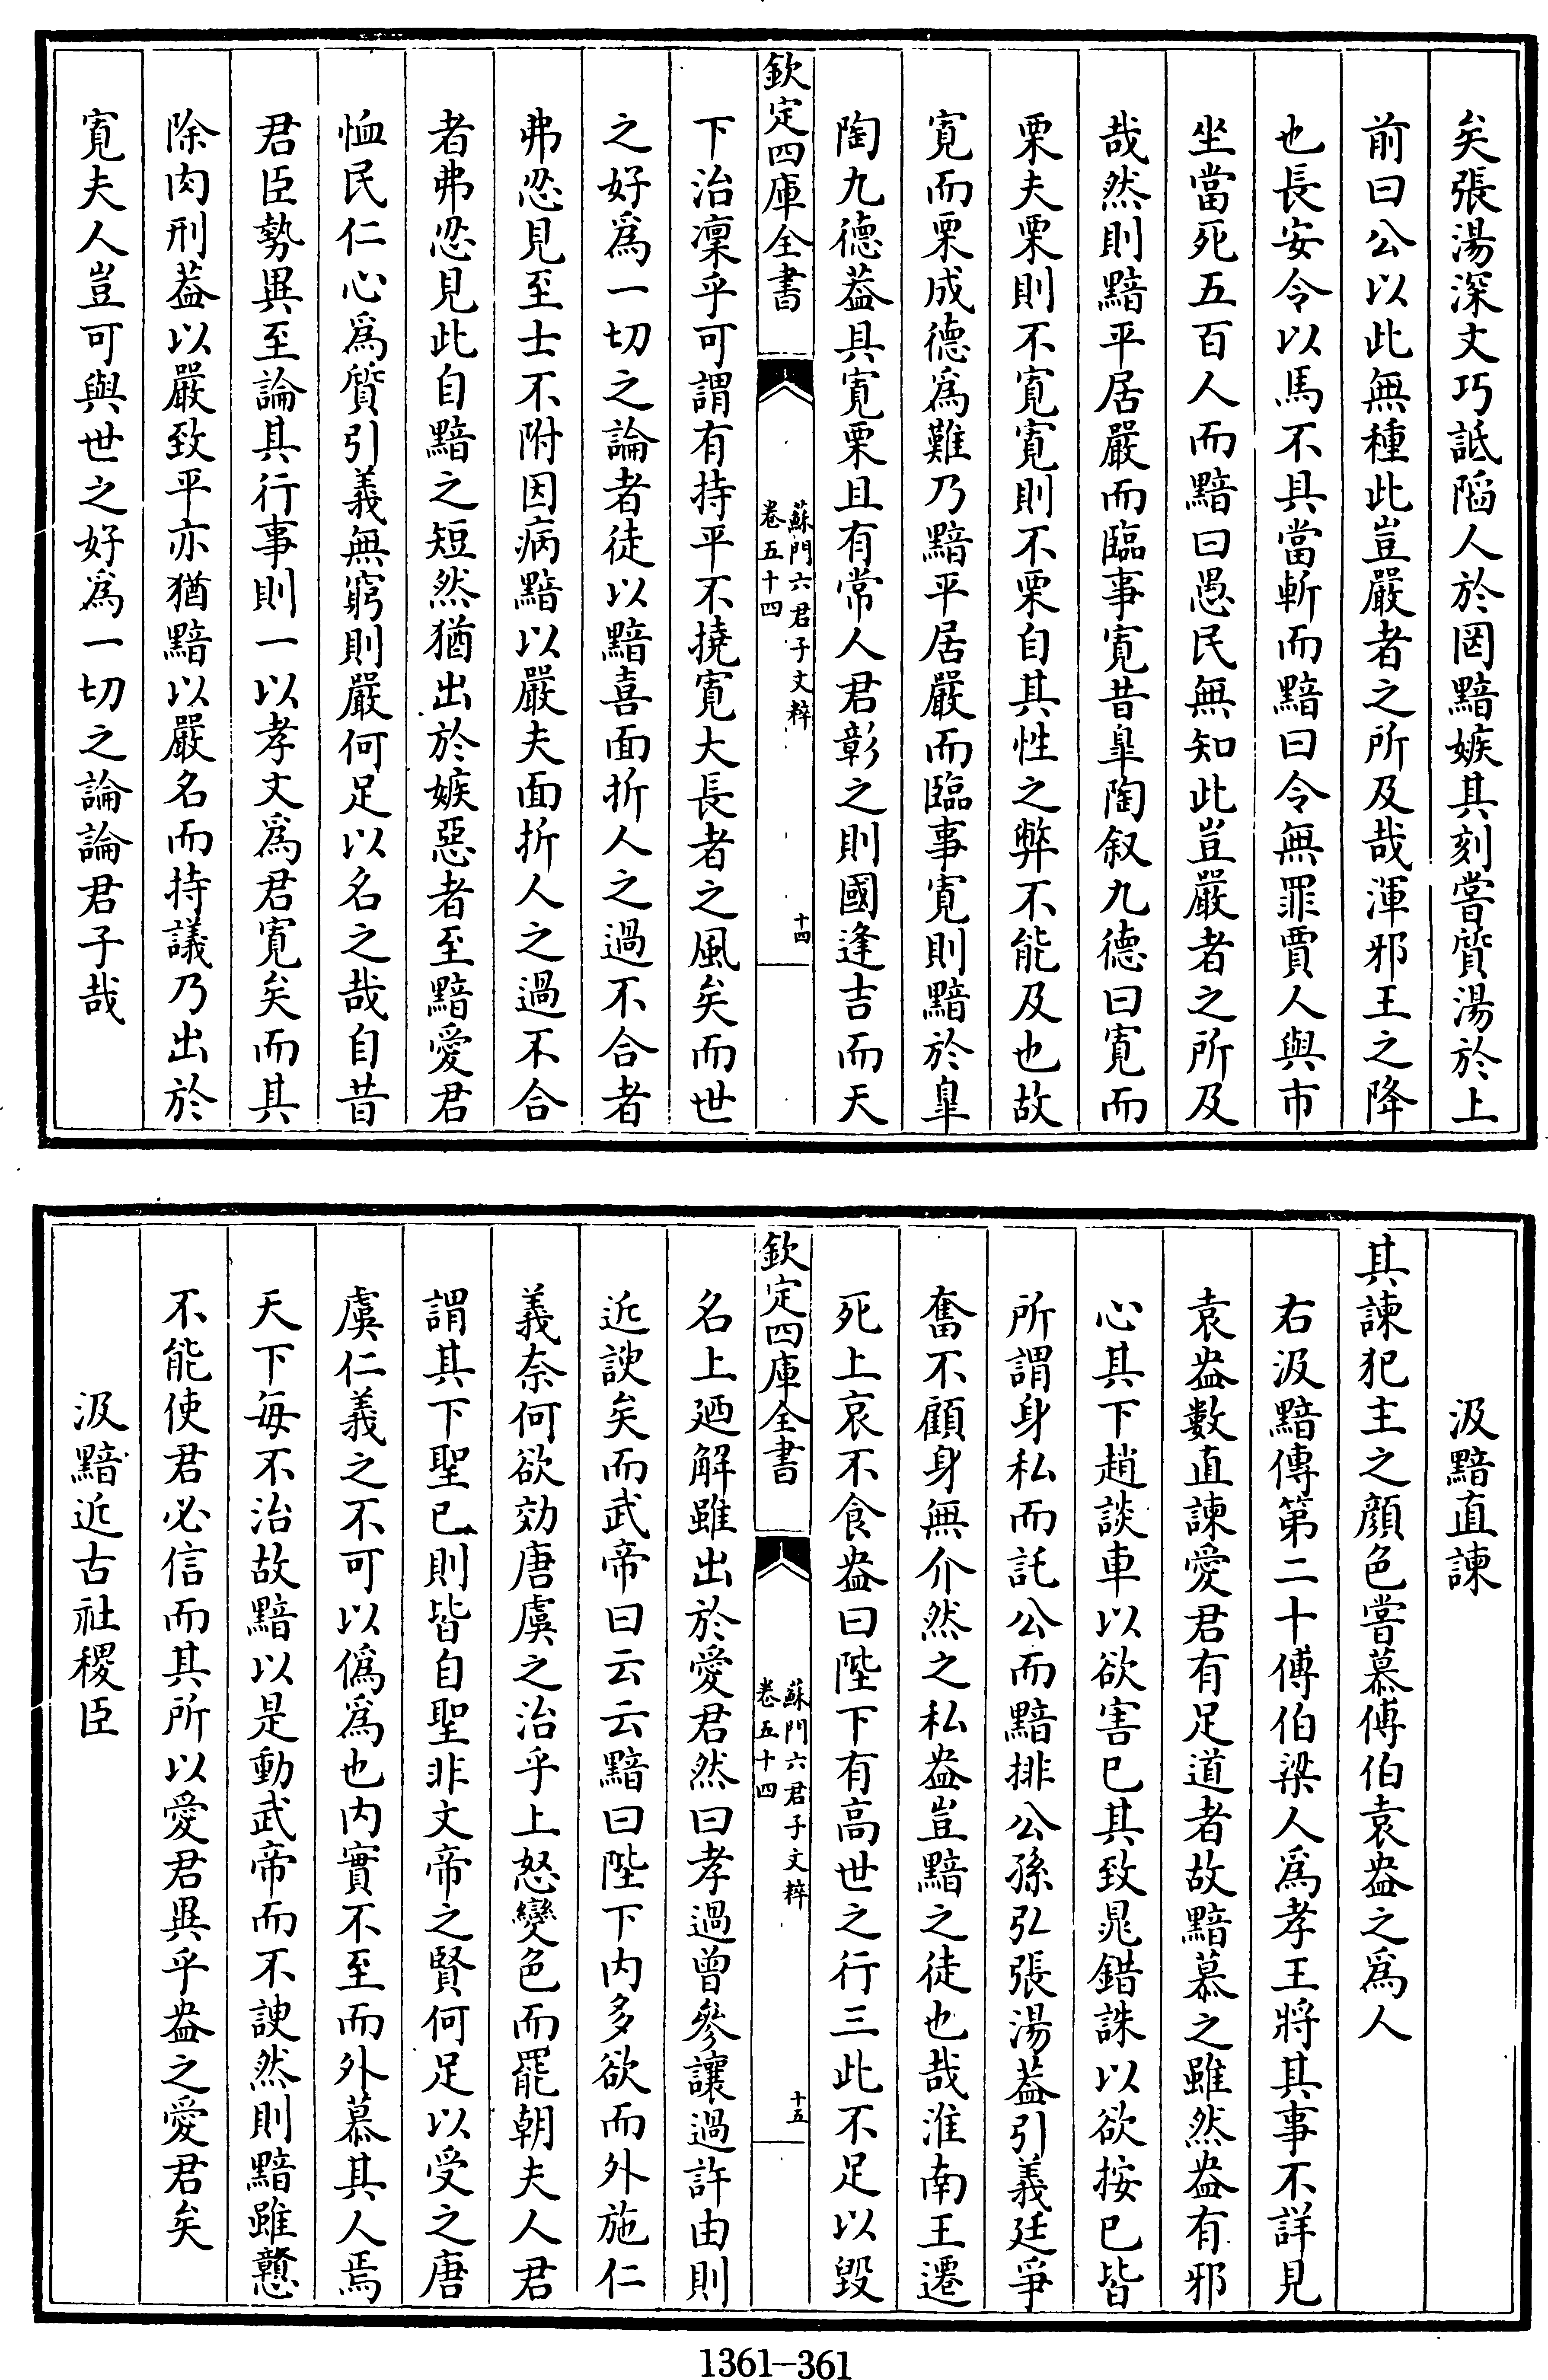 矣張湯深文巧詆陷人於罔黯嫉其刻嘗質湯於上
前曰公以此無種此豈嚴者之所及哉渾邪王之降
也長安令以馬不具當斬而黯曰令無罪賈人與市
坐當死五百人而黯曰愚民無知此豈嚴者之所及
哉然則黯平居嚴而臨事寛昔臯陶叙九德曰寛而
栗夫栗則不寛寛則不栗自其性之弊不能及也故
寛而栗成德爲難乃黯平居嚴而臨事寛則黯於臯
陶九德葢具寛栗且有常人君彰之則國逢吉而天
欽定四庫全書
蘇門六君子文粹
卷五十四
十四
下治凜乎可謂有持平不撓寛大長者之風矣而世
之好爲一切之論者徒以黯喜面折人之過不合者
弗忍見至士不附因病黯以嚴夫面折人之過不合
者弗忍見此自黯之短然猶出於嫉惡者至黯愛君
恤民仁心爲質引義無窮則嚴何足以名之哉自昔
君臣勢異至論其行事則一以孝文爲君寛矣而其
除肉刑葢以嚴致平亦猶黯以嚴名而持議乃出於
寛夫人豈可與世之好爲一切之論論君子哉
汲黯直諫
其諫犯主之顔色嘗慕傅伯袁盎之爲人
右汲黯傳第二十傅伯梁人爲孝王將其事不詳見
袁盎數直諫愛君有足道者故黯慕之雖然盎有邪
心其下趙談車以欲害已其致鼂錯誅以欲按已皆
所謂身私而託公而黯排公孫弘張湯葢引義廷爭
奮不顧身無介然之私盎豈黯之徒也哉淮南王遷
死上哀不食盎曰陛下有高世之行三此不足以毀
欽定四庫全書
蘇門六君子文粹
卷五十四
十五
名上廼解雖出於愛君然曰孝過曾參讓過許由則
近諛矣而武帝曰云云黯曰陛下内多欲而外施仁
義奈何欲効唐虞之治乎上怒變色而罷朝夫人君
謂其下聖已則皆自聖非文帝之賢何足以受之唐
虞仁義之不可以僞爲也内實不至而外慕其人焉
天下毎不治故黯以是動武帝而不諛然則黯雖戇
不能使君必信而其所以愛君異乎盎之愛君矣
汲黯近古社稷臣
1361-361